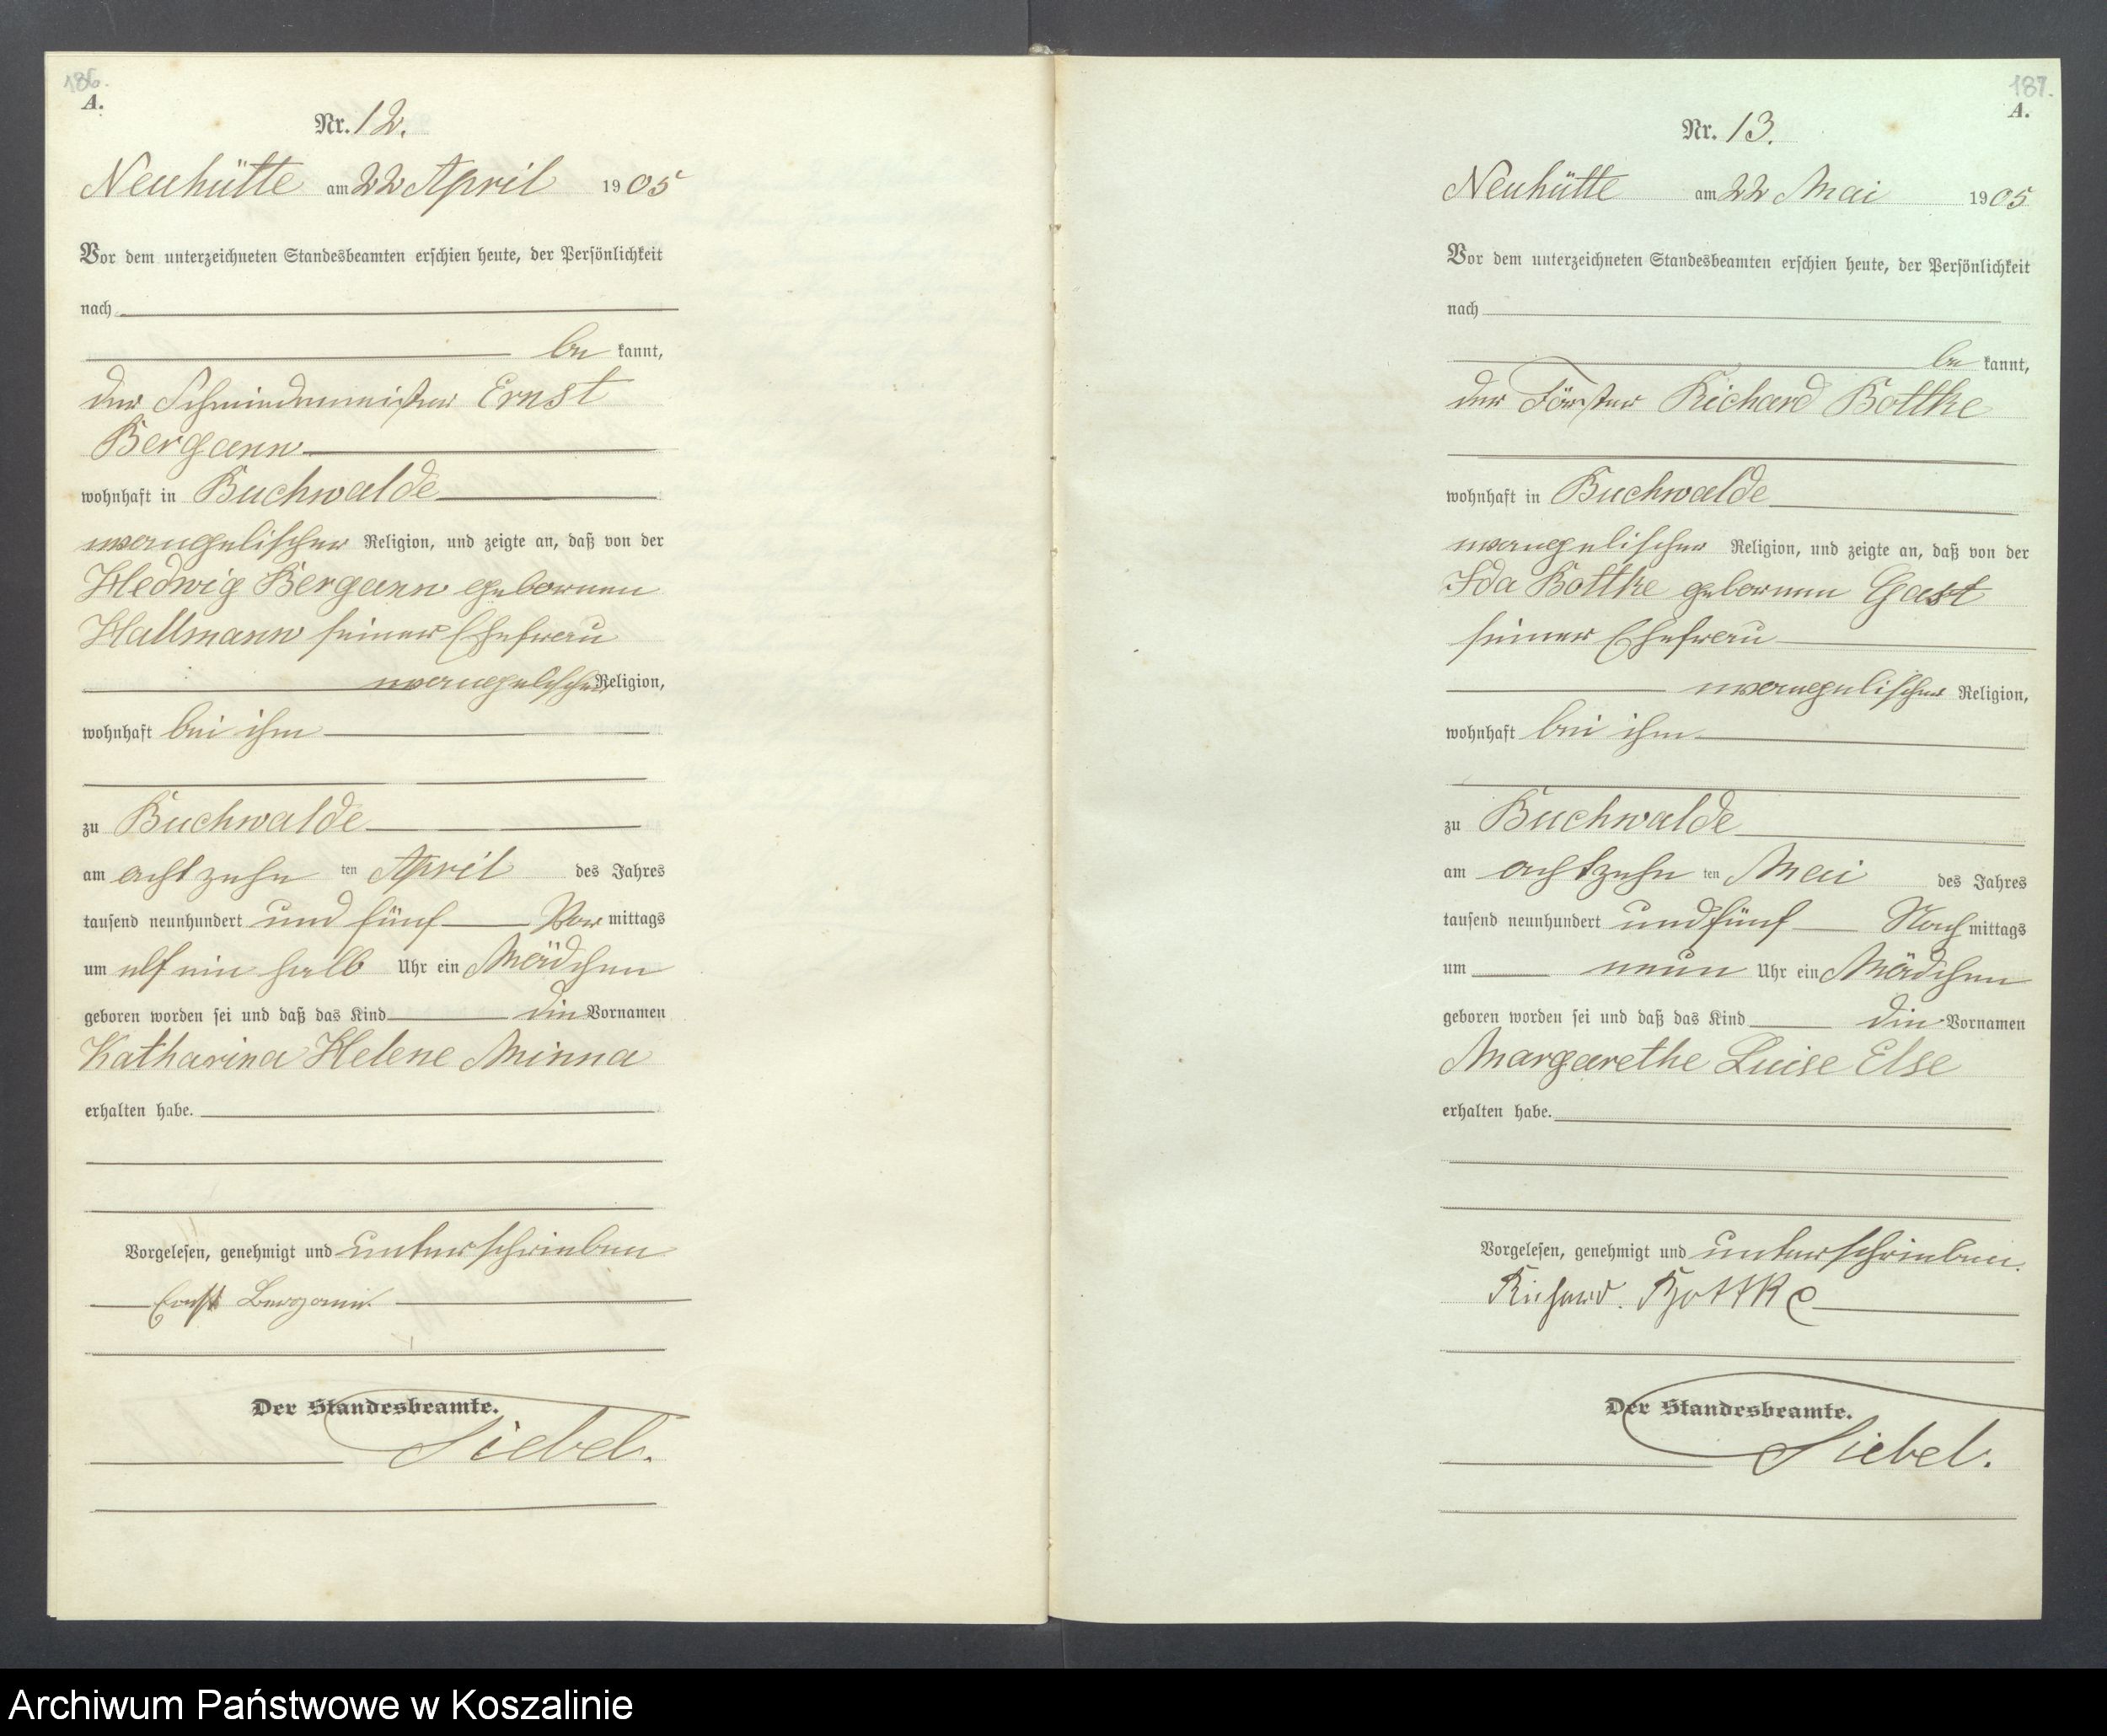 186.
A.
Nr. 12.
Neuhütte am 22 April 1905
Vor dem unterzeichneten Standesbeamten erschien heute, der Persönlichkeit
nach
be kannt,
der Schmiedemeister Ernst
Bergann
wohnhaft in Buchwalde
evangelischer Religion, und zeigte an, daß von der
Hedwig Bergann geborenen
Hallmann seiner Ehefrau
evangelischer Religion,
wohnhaft bei ihm
zu Buchwalde
am achtzehn ten April des Jahres
tausend neunhundert und fünf Vor mittags
um elf ein halb Uhr ein Mädchen
geboren worden sei und daß das Kind die Vornamen
Katharina Helene Minna
erhalten habe.
Vorgelesen, genehmigt und unterschrieben
Ernst Bergann.
Der Standesbeamte.
Siebel.
187.
A.
Nr. 13.
Neuhütte am 22 Mai 1905
Vor dem unterzeichneten Standesbeamten erschien heute, der Persönlichkeit
nach
be kannt,
der Förster Richard Bottke
wohnhaft in Buchwalde
evangelischer Religion, und zeigte an, daß von der
Ida Bottke geborenen Gast
seiner Ehefrau
evangelischer Religion,
wohnhaft bei ihm
zu Buchwalde
am achtzehn ten Mai des Jahres
tausend neunhundert und fünf Nach mittags
um neun Uhr ein Mädchen
geboren worden sei und daß das Kind die Vornamen
Margarethe Luise Else
erhalten habe.
Vorgelesen, genehmigt und unterschrieben.
Richard. Bottke
Der Standesbeamte.
Siebel.
Archiwum Państwowe w Koszalinie